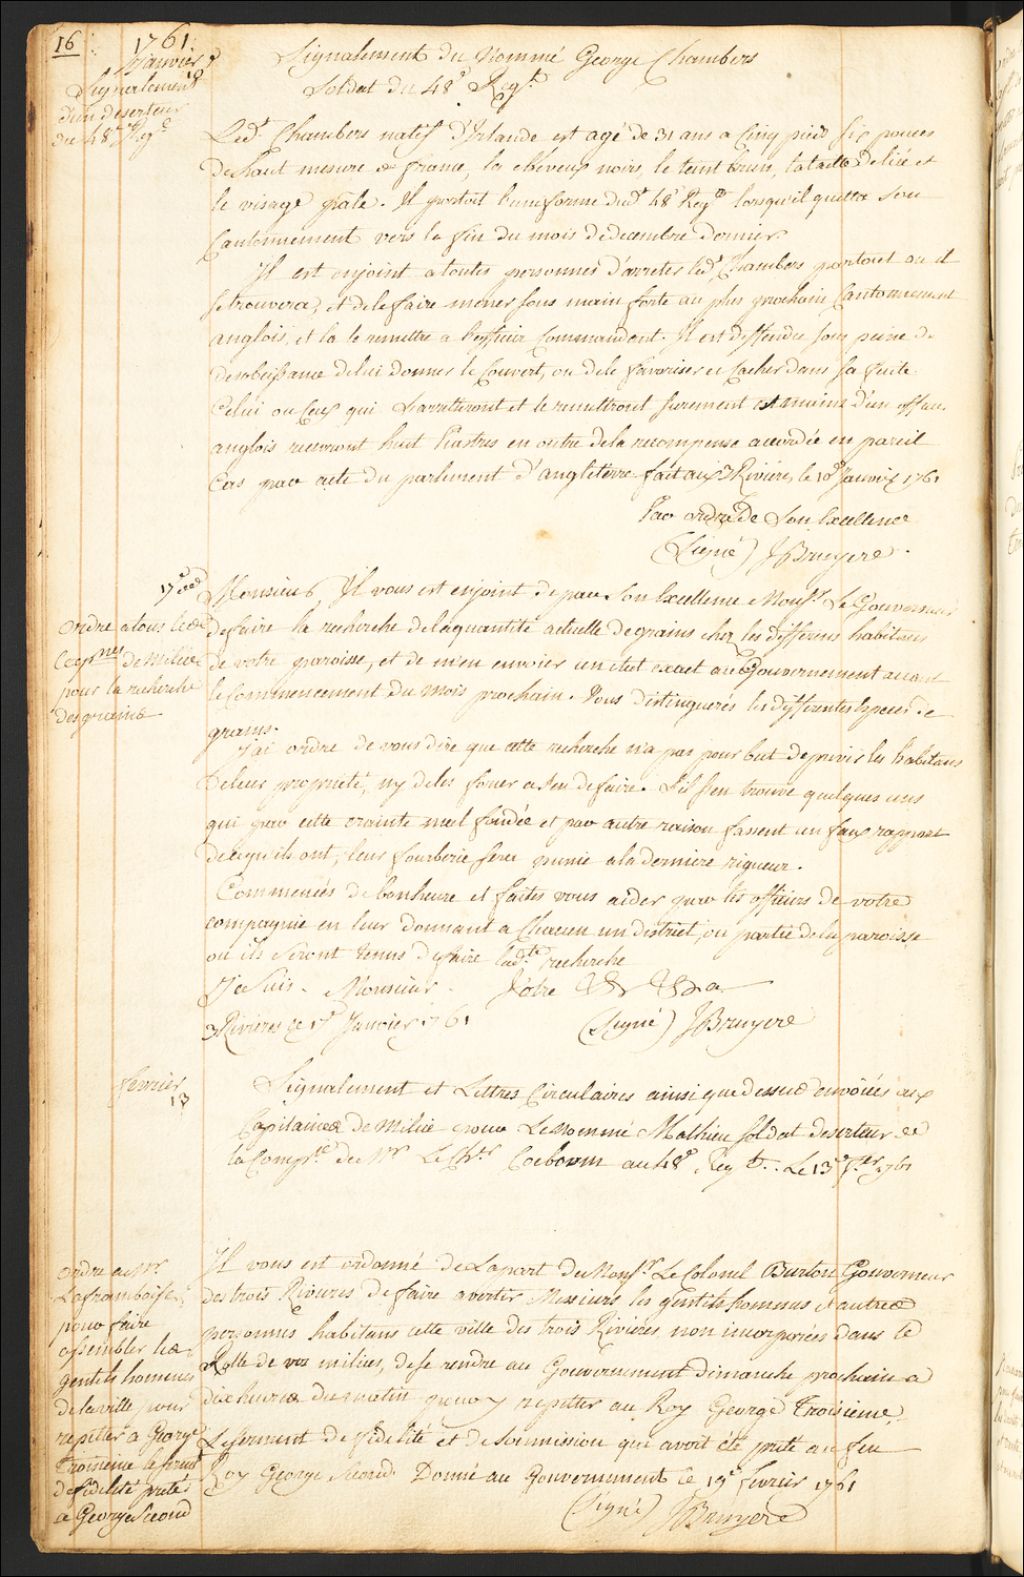 16
1761
Janvier
10
Signalement
d'un deserteur
du 48e Regt
Signalement du Nommé George Chambers
Soldat du 48e Regt
Led. Chambers natif d'Irlande est agé de 31 ans a Cinq pieds six pouces
de haut mesure de france, les cheveux noirs, le teint brun, la taille deliée et
le visage pale. Il portoit l'uniforme dud. 48e Regt lorsqu'il quitta son
Cantonnement vers la fin du mois de decembre dernier.
Il est enjoint a toutes personnes d'arreter led. Chambers partout ou il
se trouvera, et de le faire mener sous main forte au plus prochain Cantonnement
anglois, et la le remettre a l'officier Commandant. Il est deffendu sous peine de
desobeissance de lui donner le Couvert, ou de le favoriser et Cacher dans sa fuite.
Celui ou Ceux qui L'arretteront et le remettront surement es mains d'un officier
anglois recevront huit Piastres en outre de la recompense accordée en pareil
Cas par acte du parlement d'angleterre fait aux 3 Rivieres le 10e Janvier 1761
Par ordre de Son Excellence
(Signé) JBruyere.
17e
ordre a tous les
Capnes de Milice
pour la recherche
des grains
Monsieur, Il vous est enjoint de par Son Excellence Monsr. Le Gouverneur
de faire la recherche de la quantité actuelle de grains chez les differens habitans
de votre paroisse, et de m'en envoier un etat exact au Gouvernement avant
le Commencement du mois prochain. Vous distinguerés les differentes Especes de
grains.
J'ai ordre de vous dire que cette recherche n'a pas pour but de priver les habitans
de leur proprieté, ny de les forcer a s'en defaire. S'il s'en trouve quelques uns
qui par cette crainte mal fondée et par autre raison fassent un faux rapport
de ce qu'ils ont, leur fourberie sera punie a la derniere rigueur.
Commencés de bonheure et faites vous aider par les officiers de votre
compagnie en leur donnant a Chacun un district, ou partie de la paroisse
ou ils seront tenus de faire ladte recherche
Je Suis. Monsieur. Votre
3 Rivieres ce 17e Janvier 1761
(Signé) JBruyere
fevrier
13
Signalement et Lettres Circulaires ainsi que dessus envoiées aux
Capitaines de Milice pour Le nommé Mathieu soldat deserteur de
la Compie de Mr Le Chr Coeborm au 48e Regt. Le 13e fer 1761
ordre a Mr.
Laframboise
pour faire
assembler les
gentils hommes
de la ville pour
repetter a George
Troisieme le serment
de fidelité preté
a George Second
Il vous est ordonné de La part de Monsr Le Colonel Burton Gouverneur
des trois Rivieres de faire avertir Messieurs les gentils hommes et autres
personnes habitans cette ville des trois Rivieres non incorporées dans le
Rolle de vos milices, de se rendre au Gouvernement dimanche prochain a
dix heures du matin pour y repetter au Roy George Troisieme
Le serment de fidelité et de soumission qui avoit été preté au feu
Roy George Second. Donné au Gouvernement le 19e fevrier 1761
(Signé) JBruyere